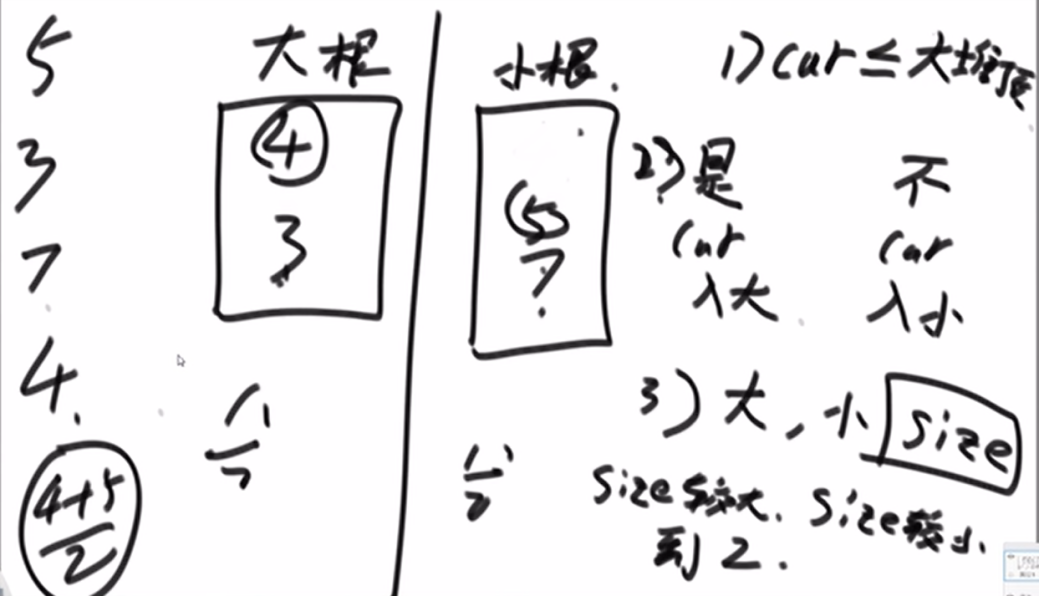 5
3
7
4.
4+5
2
大根
4
3
小根.
5
7
1) cur ≤ 大堆顶
2) 是 不
cur cur
入大 入小
3) 大, 小 size
size较大. size较小.
到 2.